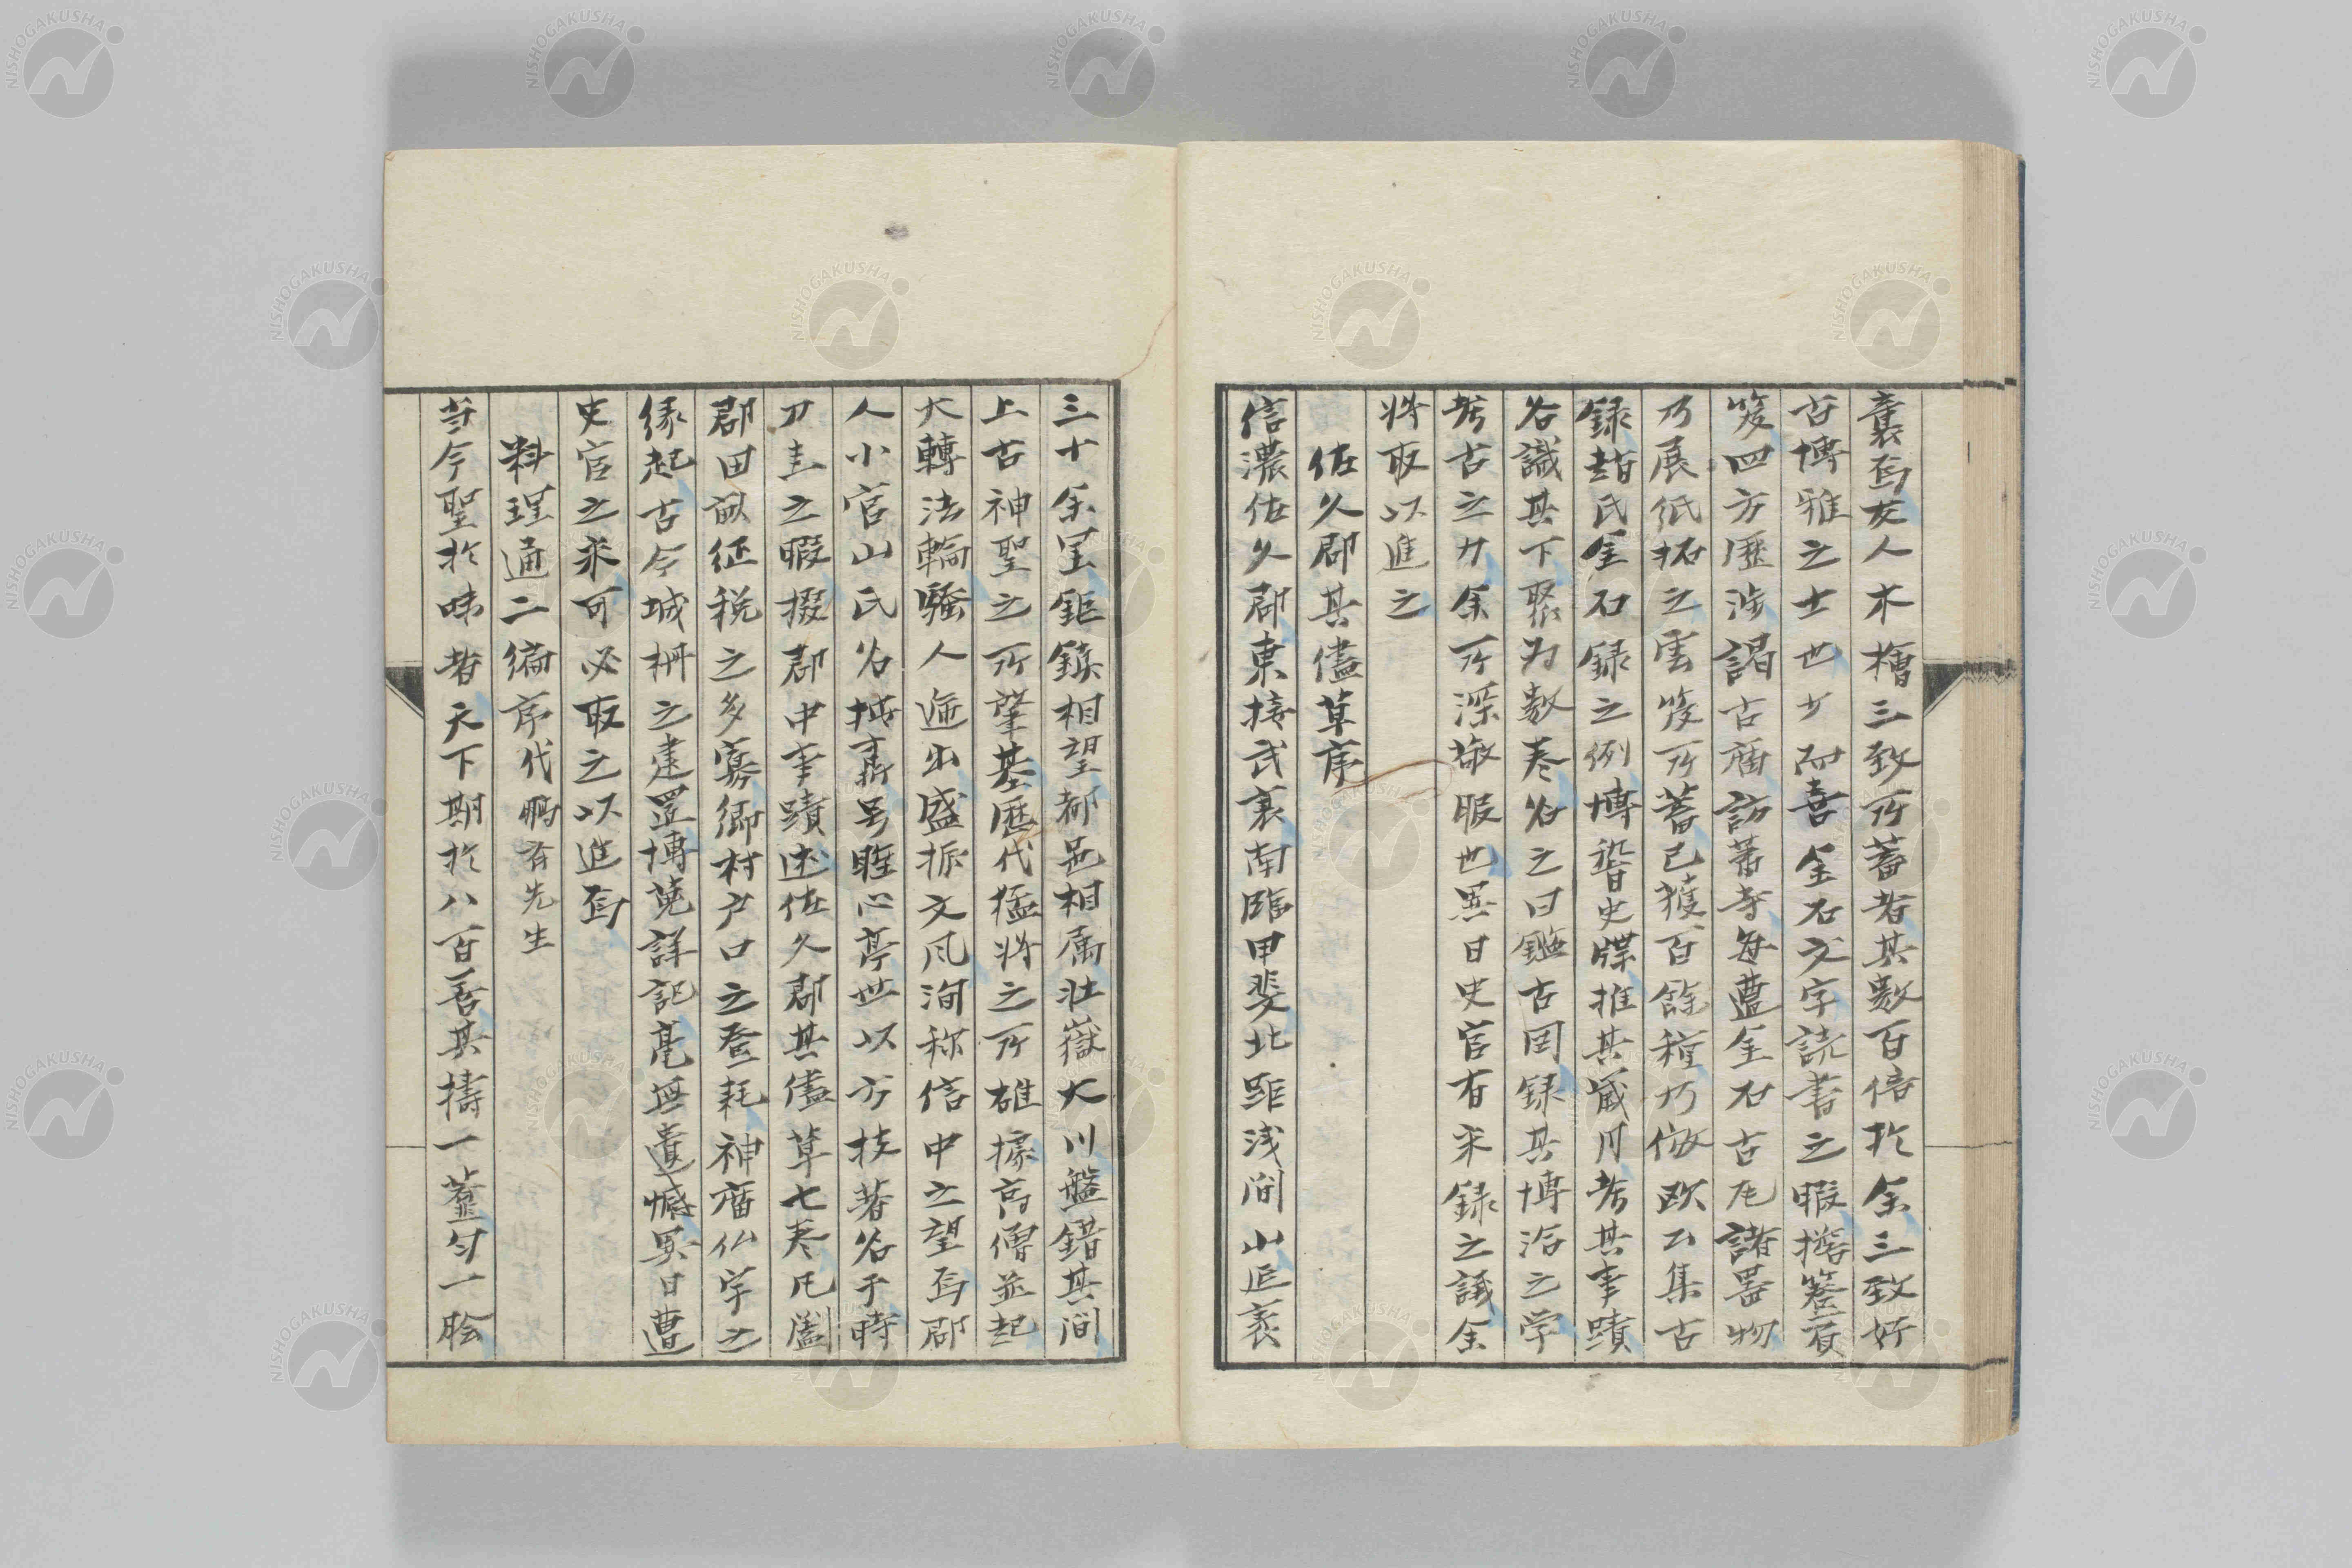 嚢焉友人木檜三致所蓄者其数百倍於余三致好
古博雅之士也少而喜金石文字読書之暇担簦負
笈四方歴渉謁古廟訪蕃寺毎遭金石古瓦諸器物
乃展紙拓之雲笈所蓄已獲百餘種乃倣欧公集古
録趙氏金石録之例博稽史牒推其歳月考其事蹟
各識其下聚為数巻名之曰鑑古図録其博洽之学
考古之力余所深敬服也異日史官有采録之議余
将取以進之
佐久郡其儘草序
信濃佐久郡東接武裏南臨甲斐北距浅間山延袤
三十余里鉅鎮相望都邑相属壮嶽大川盤錯其間
上古神聖之所肇基歴代猛将之所雄據高僧並起
大轉法輪騒人逓出盛振文風洵称信中之望焉郡
人小宮山氏名城斎号睡心亭世以方技著名于時
刀圭之暇掇郡中事蹟述佐久郡其儘草七巻凡闔
郡田畝征税之多寡郷村戸口之登耗神廟仏宇之
縁起古今城柵之建置博蒐詳記毫無遺憾異日遭
史官之采可必取之以進焉
料理通二編序代鵬斎先生
当今聖於味者天下期於八百善其擣一虀匀一膾